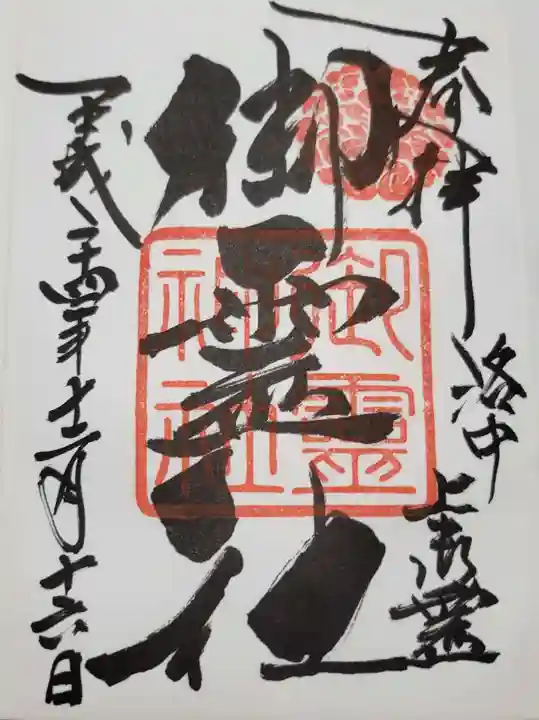 奉拝
洛中
上御霊
御靈社
御靈神社
平成二十四年十二月十六日